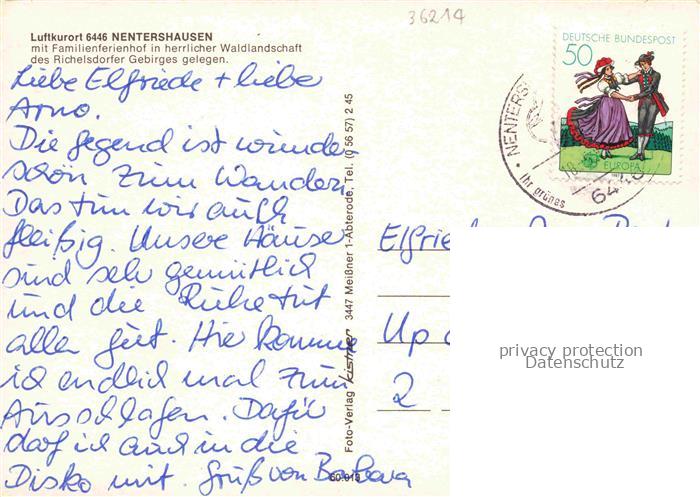 36214
Luftkurort 6446 NENTERSHAUSEN
mit Familienferienhof in herrlicher Waldlandschaft
des Richelsdorfer Gebirges gelegen.
Liebe Elfriede + liebe
Arno.
Die Gegend ist wunder
schön zum Wandern
Das tun wir auch
fleißig. Unsere Häuser
sind sehr gemütlich
und die Ruhe tut
allen gut. Hier komme
ich endlich mal zum
Ausschlafen. Dafür
darf ich auch in die
Disko mit. Gruß von Barbara
Foto-Verlag Kistner 3447 Meißner 1-Abterode, Tel. (0 56 57) 2 45
60.018
DEUTSCHE BUNDESPOST
50
EUROPA
NENTERS
Ihr grünes
64
Elfrie
Up
2
privacy protection
Datenschutz